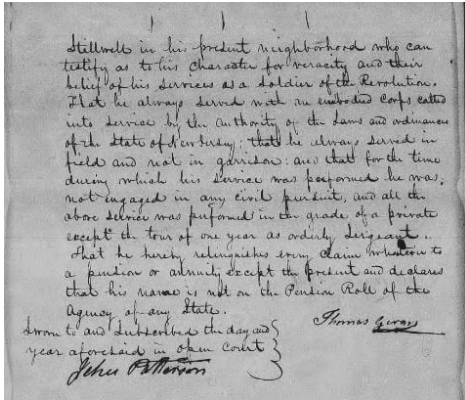 Stillwell in his present neighborhood who can
testify as to his character for veracity and their
belief of his services as a Soldier of the Revolution.
That he always served with an embodied Corps called
into service by the Authority of the Laws and ordinances
of the State of New Jersey; that he always served in
field and not in garrison: and that for the time
during which his service was performed he was
not engaged in any civil pursuit, and all the
above service was performed in the grade of a private
except the tour of one year as orderly Sergeant.
That he hereby relinquishes every claim whatever to
a pension or annuity except the present and declares
that his name is not on the Pension Roll of the
Agency of any State.
Sworn to and Subscribed the day and
year aforesaid in open Court
Thomas
Jehu Patterson